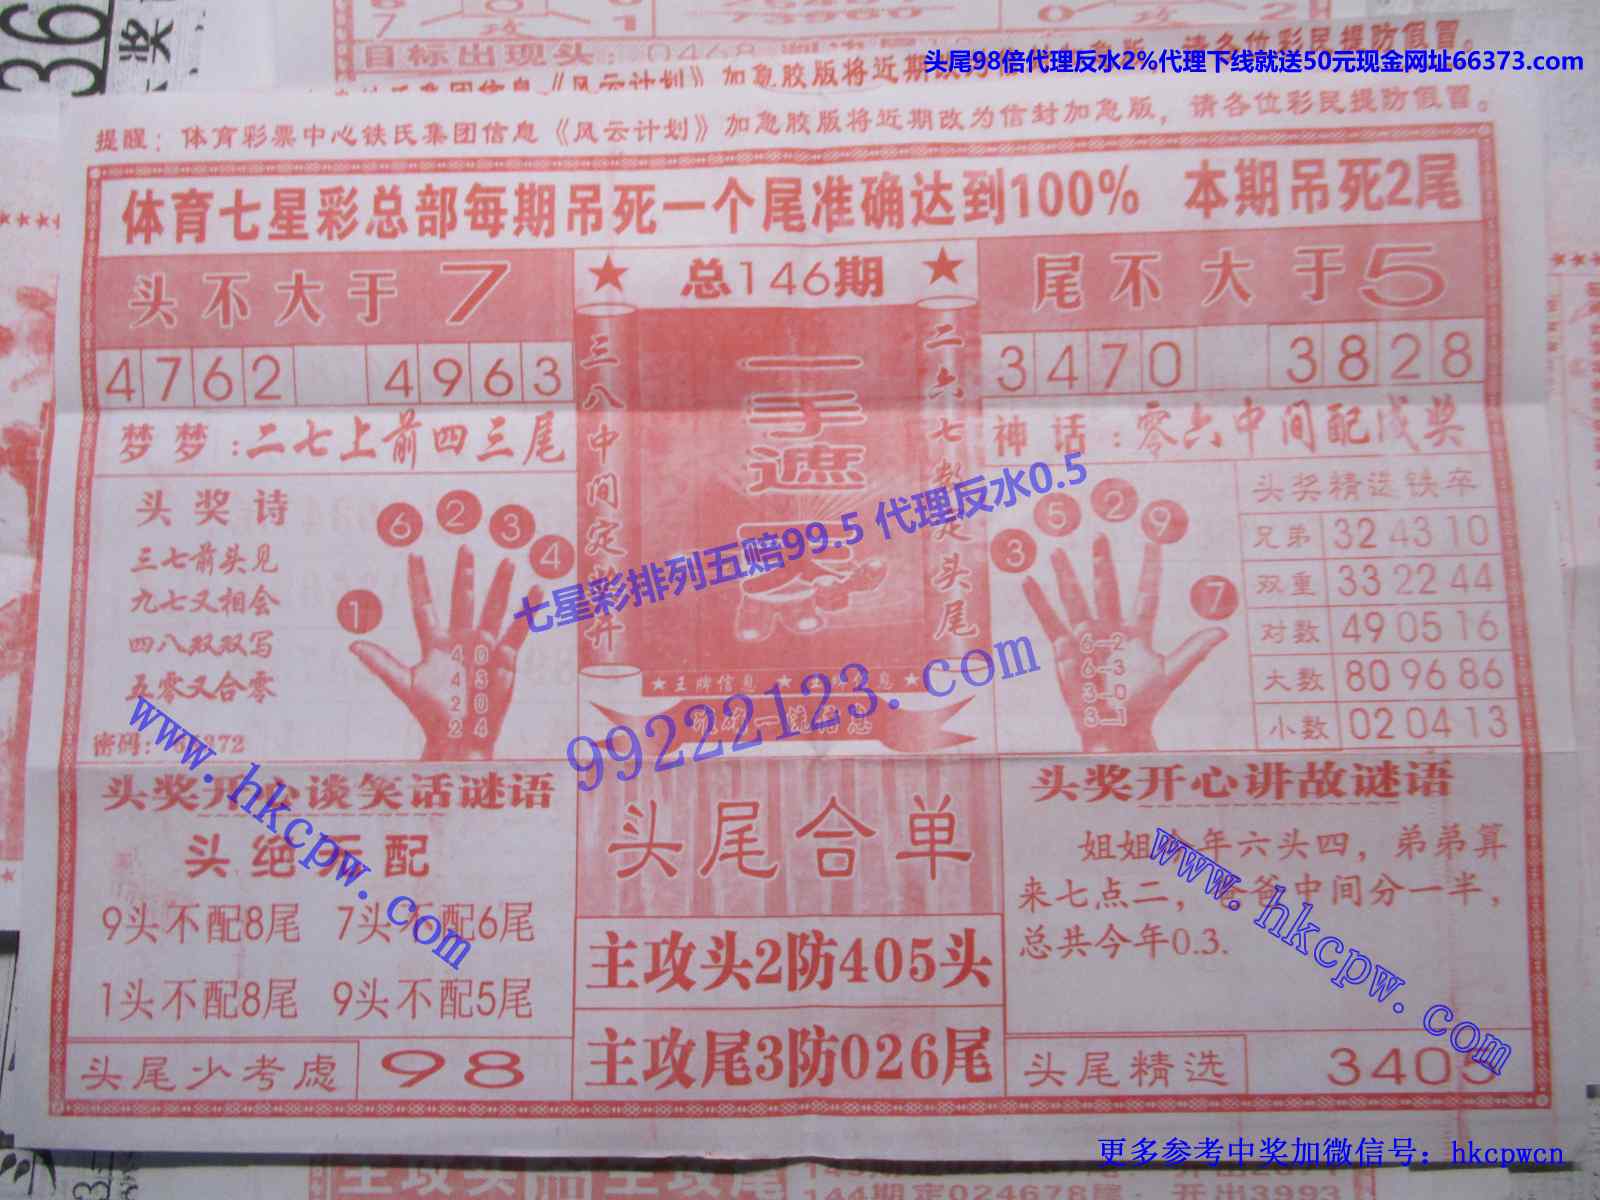 头尾98倍代理反水2%代理下线就送50元现金网址66373.com
目标出现头:0468
提醒：体育彩票中心铁氏集团信息《风云计划》加急胶版将近期改为信封加急版，请各位彩民提防假冒。
体育七星彩总部每期吊死一个尾准确达到100% 本期吊死2尾
头不大于7
★总146期★
尾不大于5
4762 4963
3470 3828
三八中间定 开
一手遮天
二六七数定头尾
梦梦:二七上前四三尾
神话:零六中间配成奖
头奖诗
三七前头见
九七又相会
四八双双写
五零又合零
密码:
1 6 2 3 4
4 0
4 3
2 0
2 4
3 5 2 9 7
6-2
6-3
3-0
3-1
头奖精选铁卒
兄弟 32 43 10
双重 33 22 44
对数 49 05 16
大数 80 96 86
小数 02 04 13
★王牌信息★
七星彩排列五赔99.5 代理反水0.5
99222123.com
www.hkcpw.com
头奖开心谈笑话谜语
头绝不配
9头不配8尾 7头不配6尾
1头不配8尾 9头不配5尾
头尾少考虑 98
头尾合单
主攻头2防405头
主攻尾3防026尾
头奖开心讲故谜语
姐姐 年六头四，弟弟算
来七点二，爸爸中间分一半，
总共今年0.3.
www.hkcpw.com
头尾精选 3405
更多参考中奖加微信号：hkcpwcn
144期定024678尾，开出3993